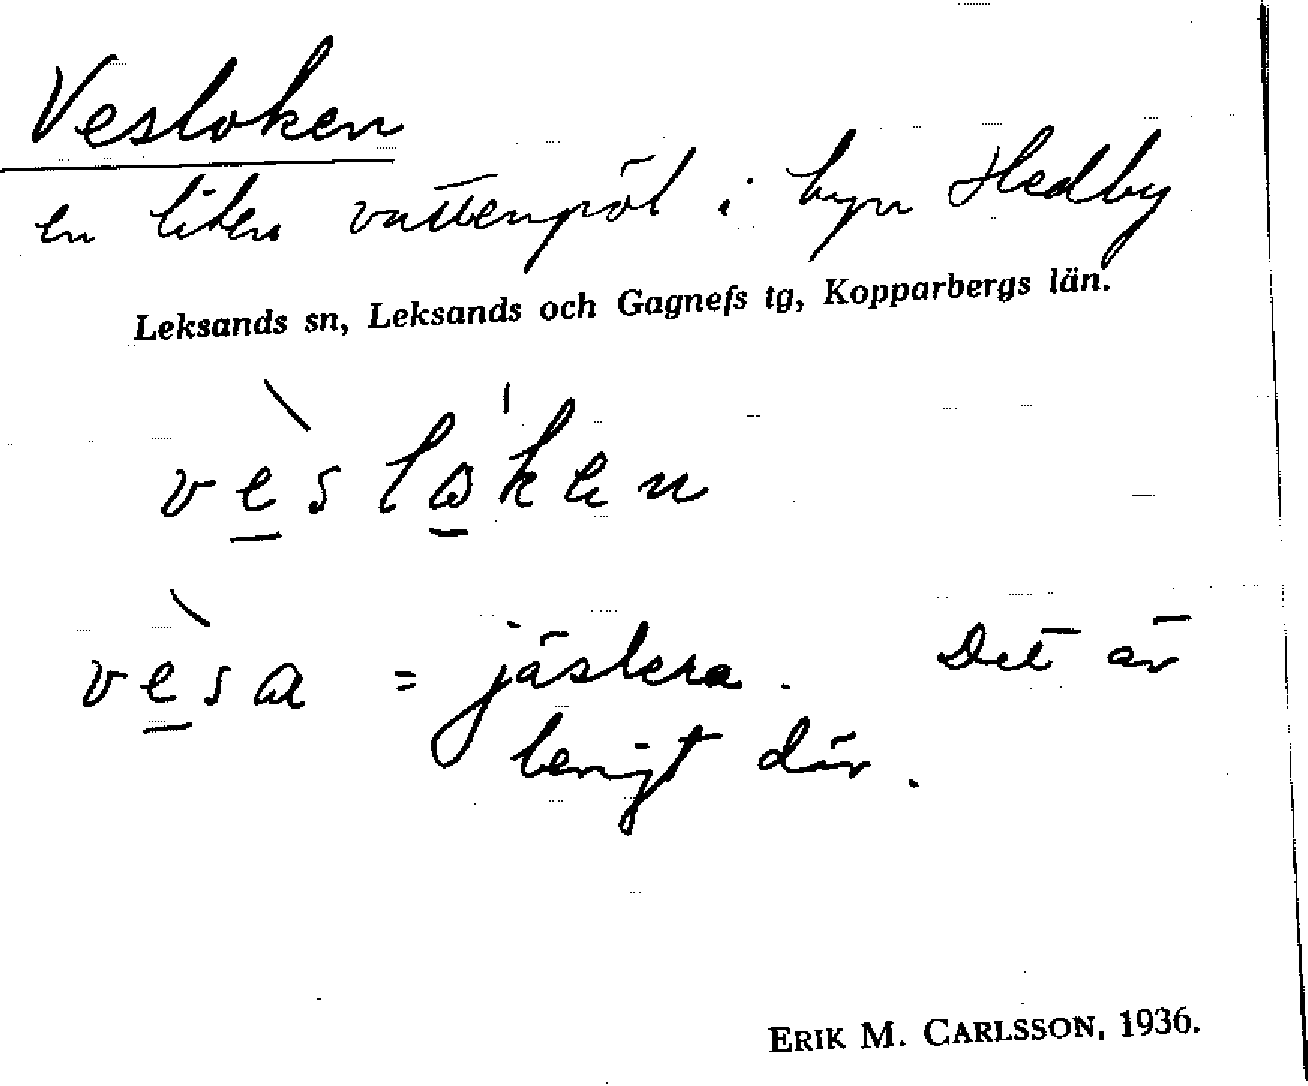 Vesloken
en liten vattenpöl i byn Hedby
Leksands sn, Leksands och Gagnefs tg, Kopparbergs län.
vèslåken
vèsa = jäslera. Det är
lerigt där.
ERIK M. CARLSSON, 1936.